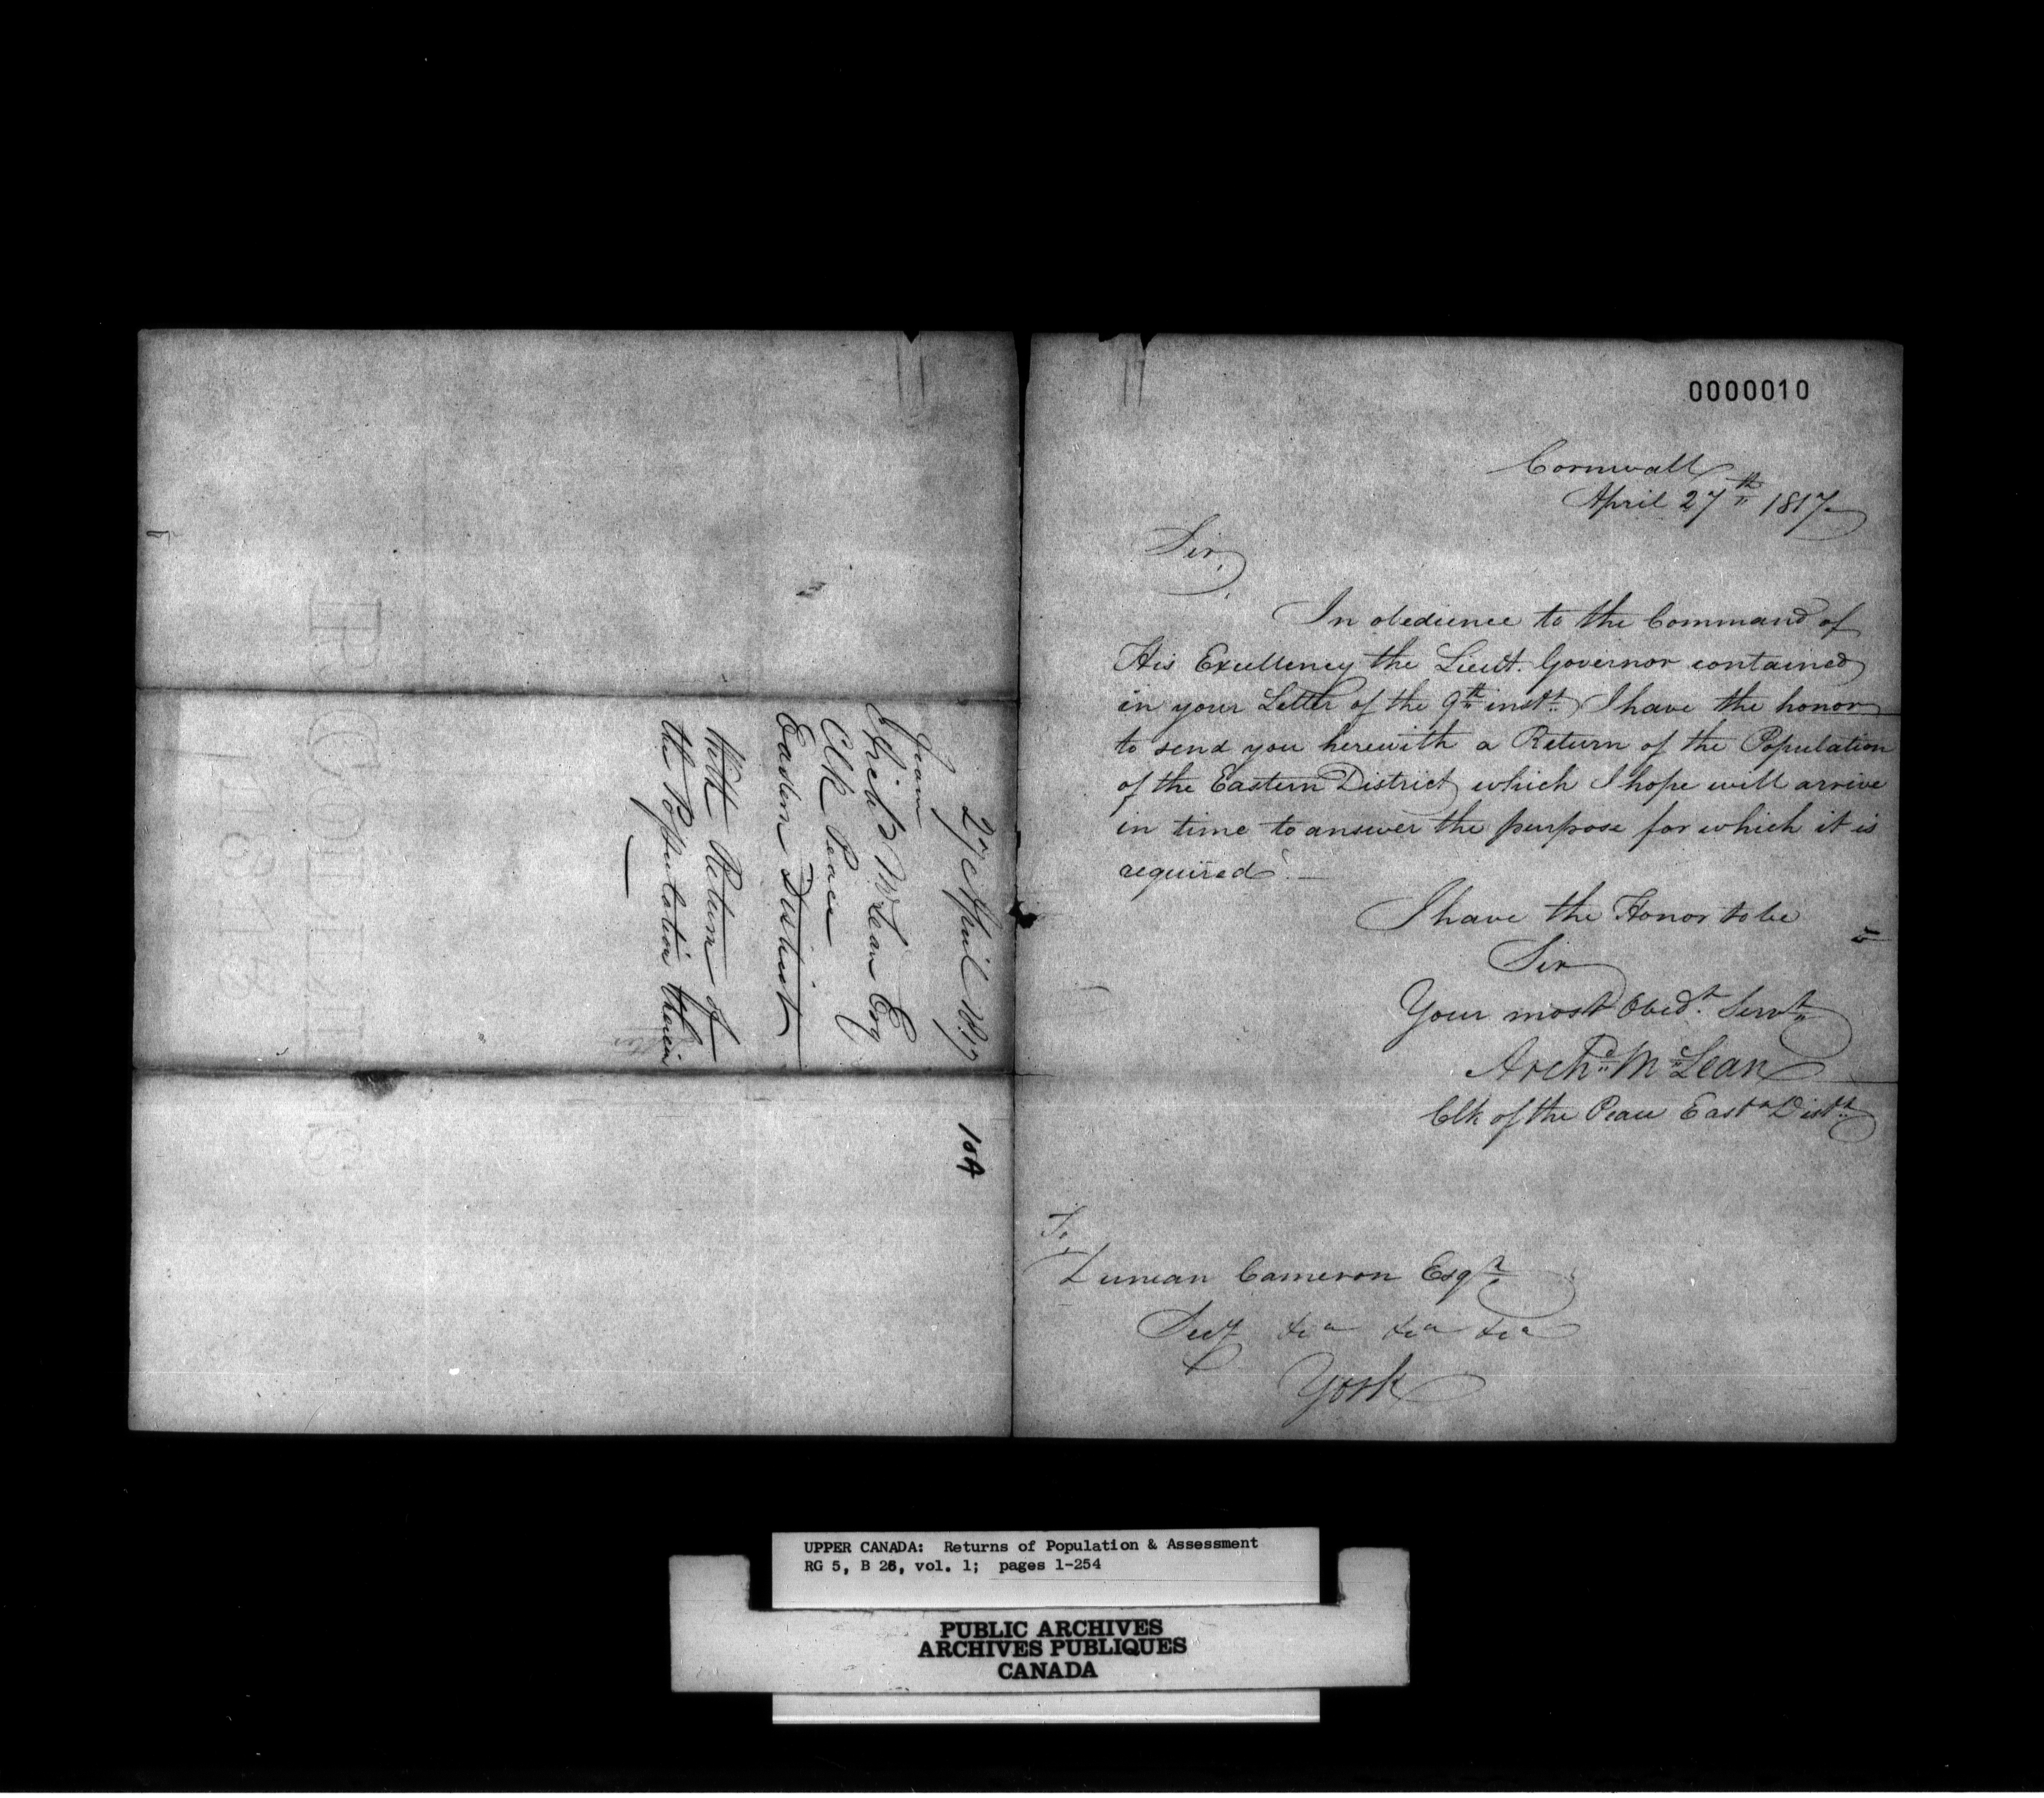 27 April 1817
From
Archd McLean Esq
Clk Peace
Eastern District
With Return of
the Population therein
10A
0000010
Cornwall
April 27th 1817
Sir,
In obedience to the Command of
His Excellency the Lieut. Governor contained
in your Letter of the 9th inst. I have the honor
to send you herewith a Return of the Population
of the Eastern District which I hope will arrive
in time to answer the purpose for which it is
required.—
I have the Honor to be
Sir
Your most Obedt. Servt.
Archd. McLean
Clk of the Peace Eastn Distt.
To,
Duncan Cameron Esqr.
Secy &ca &ca &ca
York
UPPER CANADA: Returns of Population & Assessment
RG 5, B 26, vol. 1; pages 1-254
PUBLIC ARCHIVES
ARCHIVES PUBLIQUES
CANADA